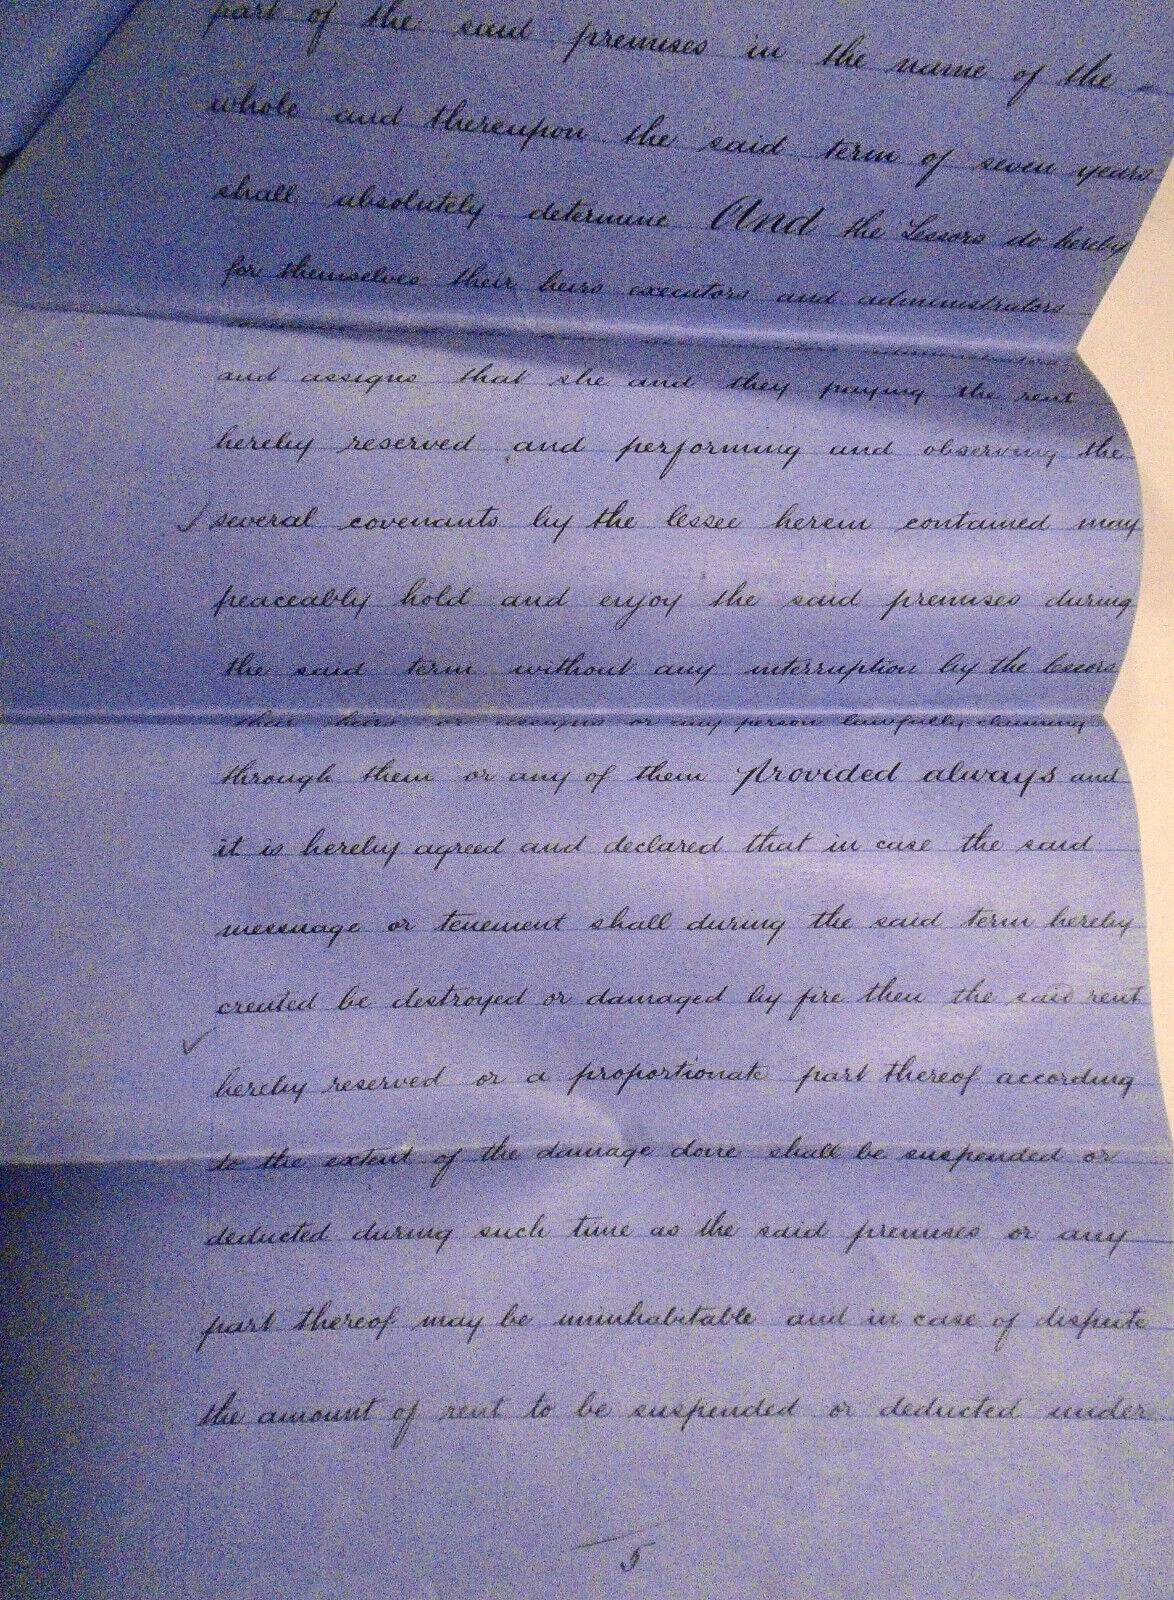 part of the said premises in the name of the
whole and thereupon the said term of seven years
shall absolutely determine And the Lessors do hereby
for themselves their heirs executors and administrators
administrators
and assigns that she and they paying the rent
hereby reserved and performing and observing the
several covenants by the lessee herein contained may
peaceably hold and enjoy the said premises during
the said term without any interruption by the lessors
their heirs or assigns or any person lawfully claiming
through them or any of them Provided always and
it is hereby agreed and declared that in case the said
messuage or tenement shall during the said term hereby
created be destroyed or damaged by fire then the said rent
hereby reserved or a proportionate part thereof according
to the extent of the damage done shall be suspended or
deducted during such time as the said premises or any
part thereof may be uninhabitable and in case of dispute
the amount of rent to be suspended or deducted under
5